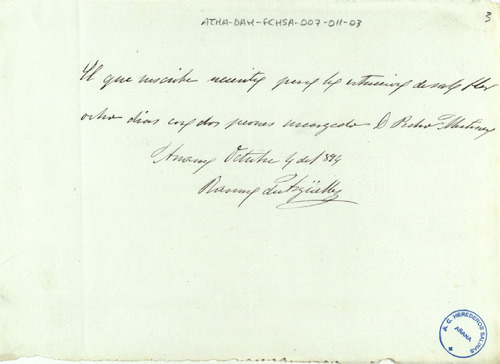 ATHA-DAH-FCHSA-007-011-03
3
El que suscribe necesita para la estraccion de sal
ocho dias con dos peones encargado D Pedro Martinez
Anana Octubre 4 del 894
Ramon de Argüelles
A. C. HEREDEROS SALINAS
AÑANA